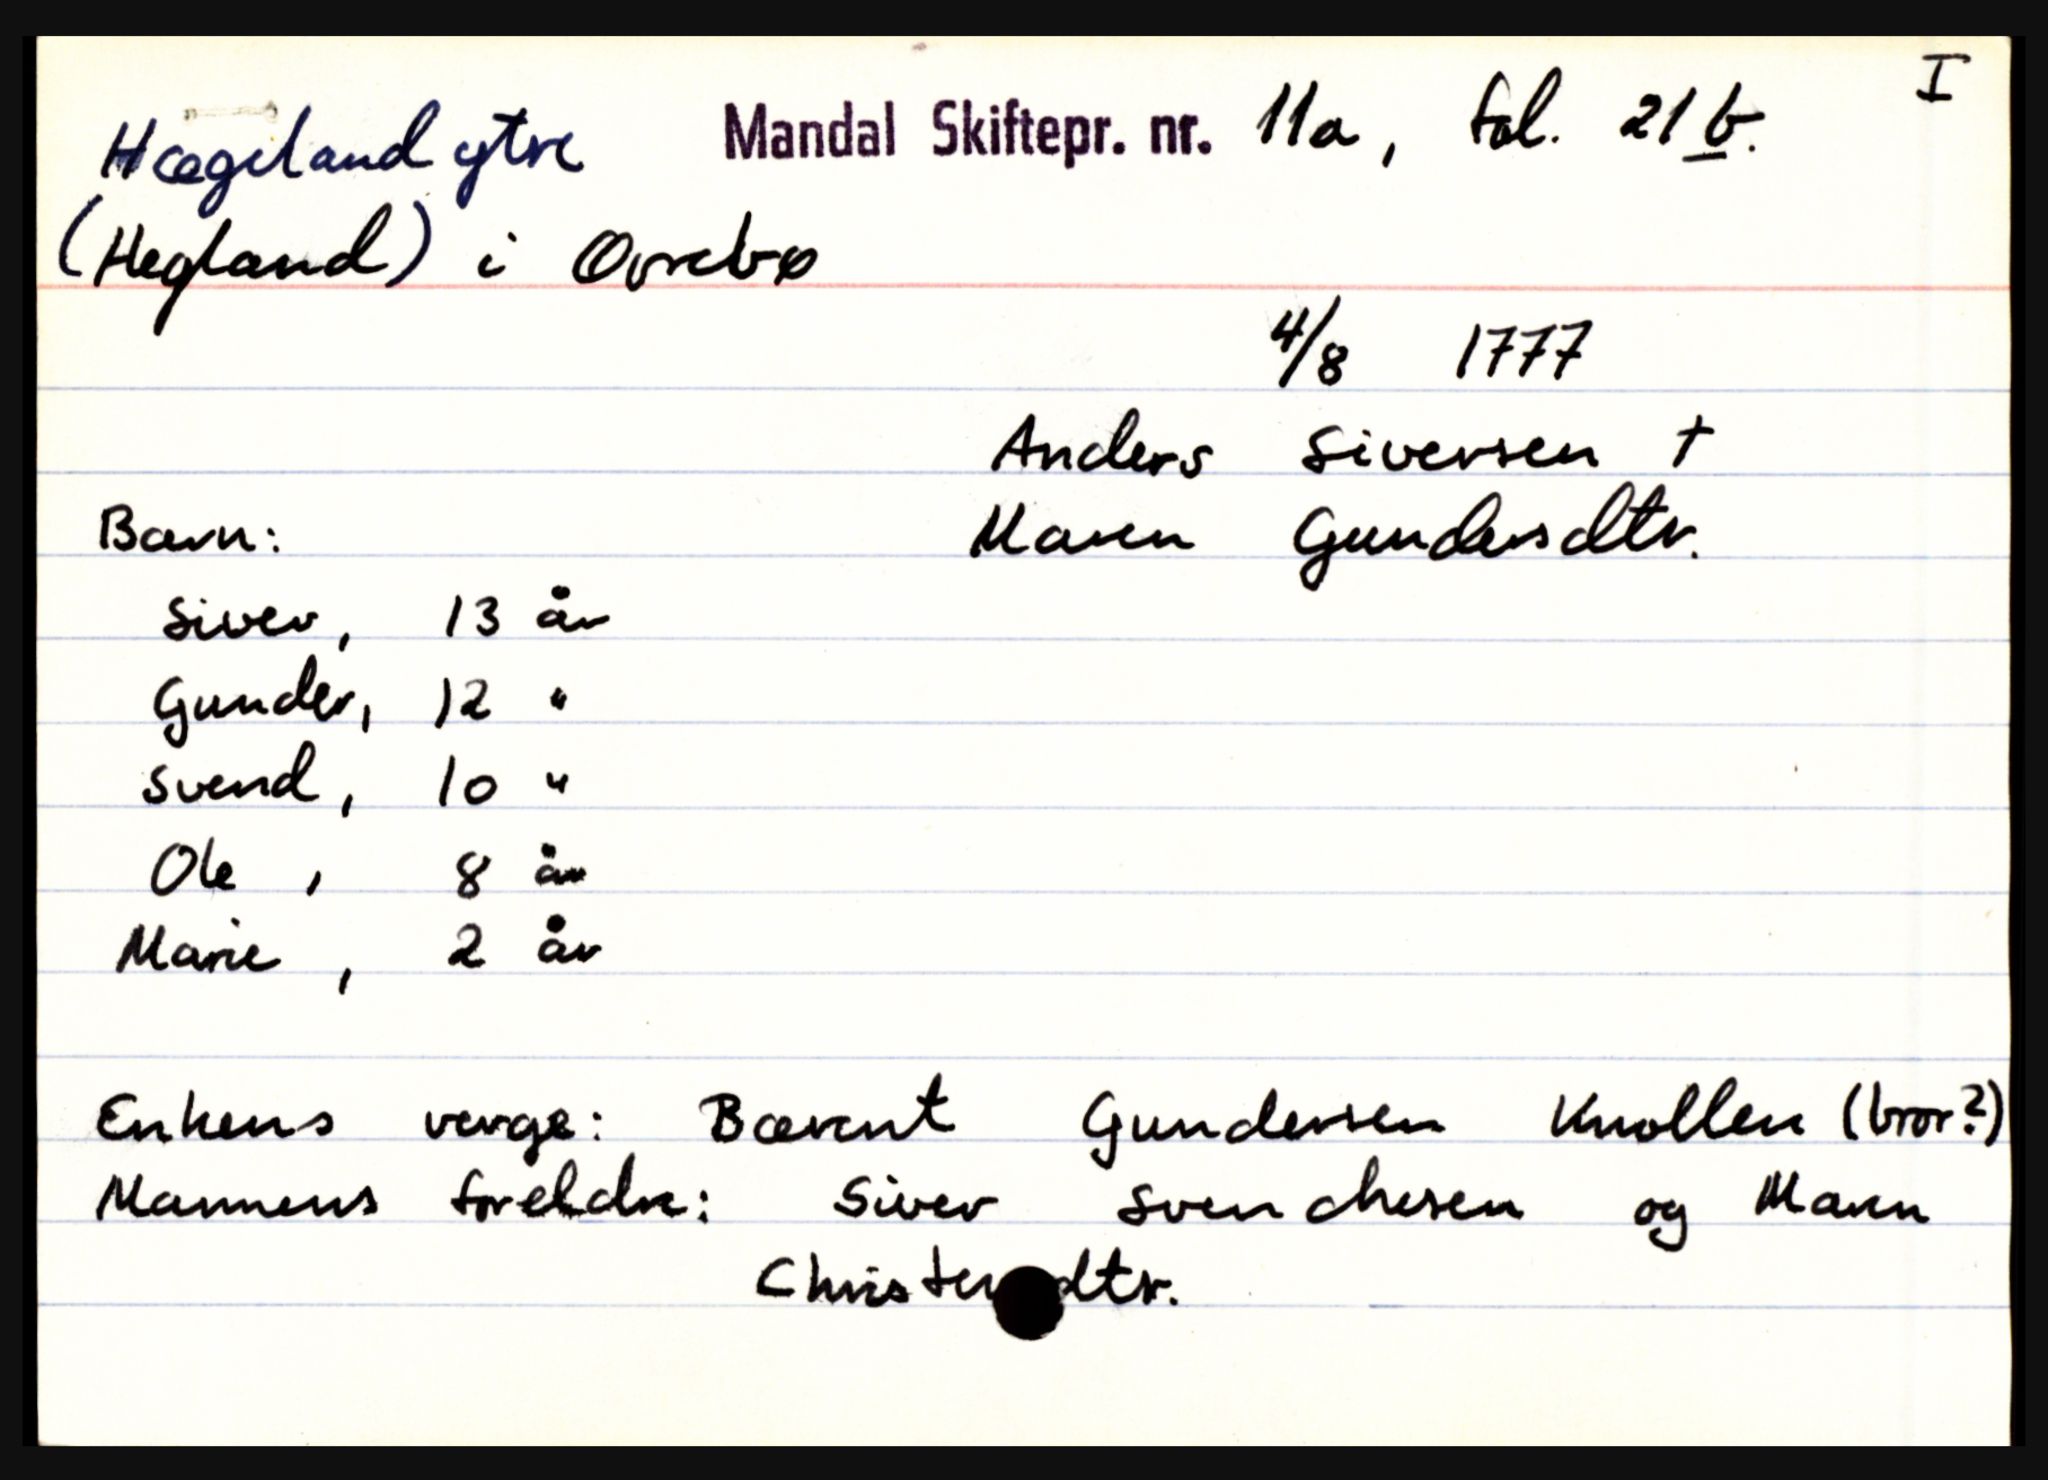 I
Hægeland ytre Mandal Skiftepr. nr. 11a, fol. 21b.
(Hegland) i Øvrebø
4/8 1777
Anders Siversen †
Barn: Maren Gundersdtr.
Siver, 13 år
Gunder, 12 "
Svend, 10 "
Ole, 8 år
Marie, 2 år
Enkens verge: Bærent Gundersen Knollen (bror?)
Mannens foreldre: Siver Svendsen og Maren
Christensdtr.